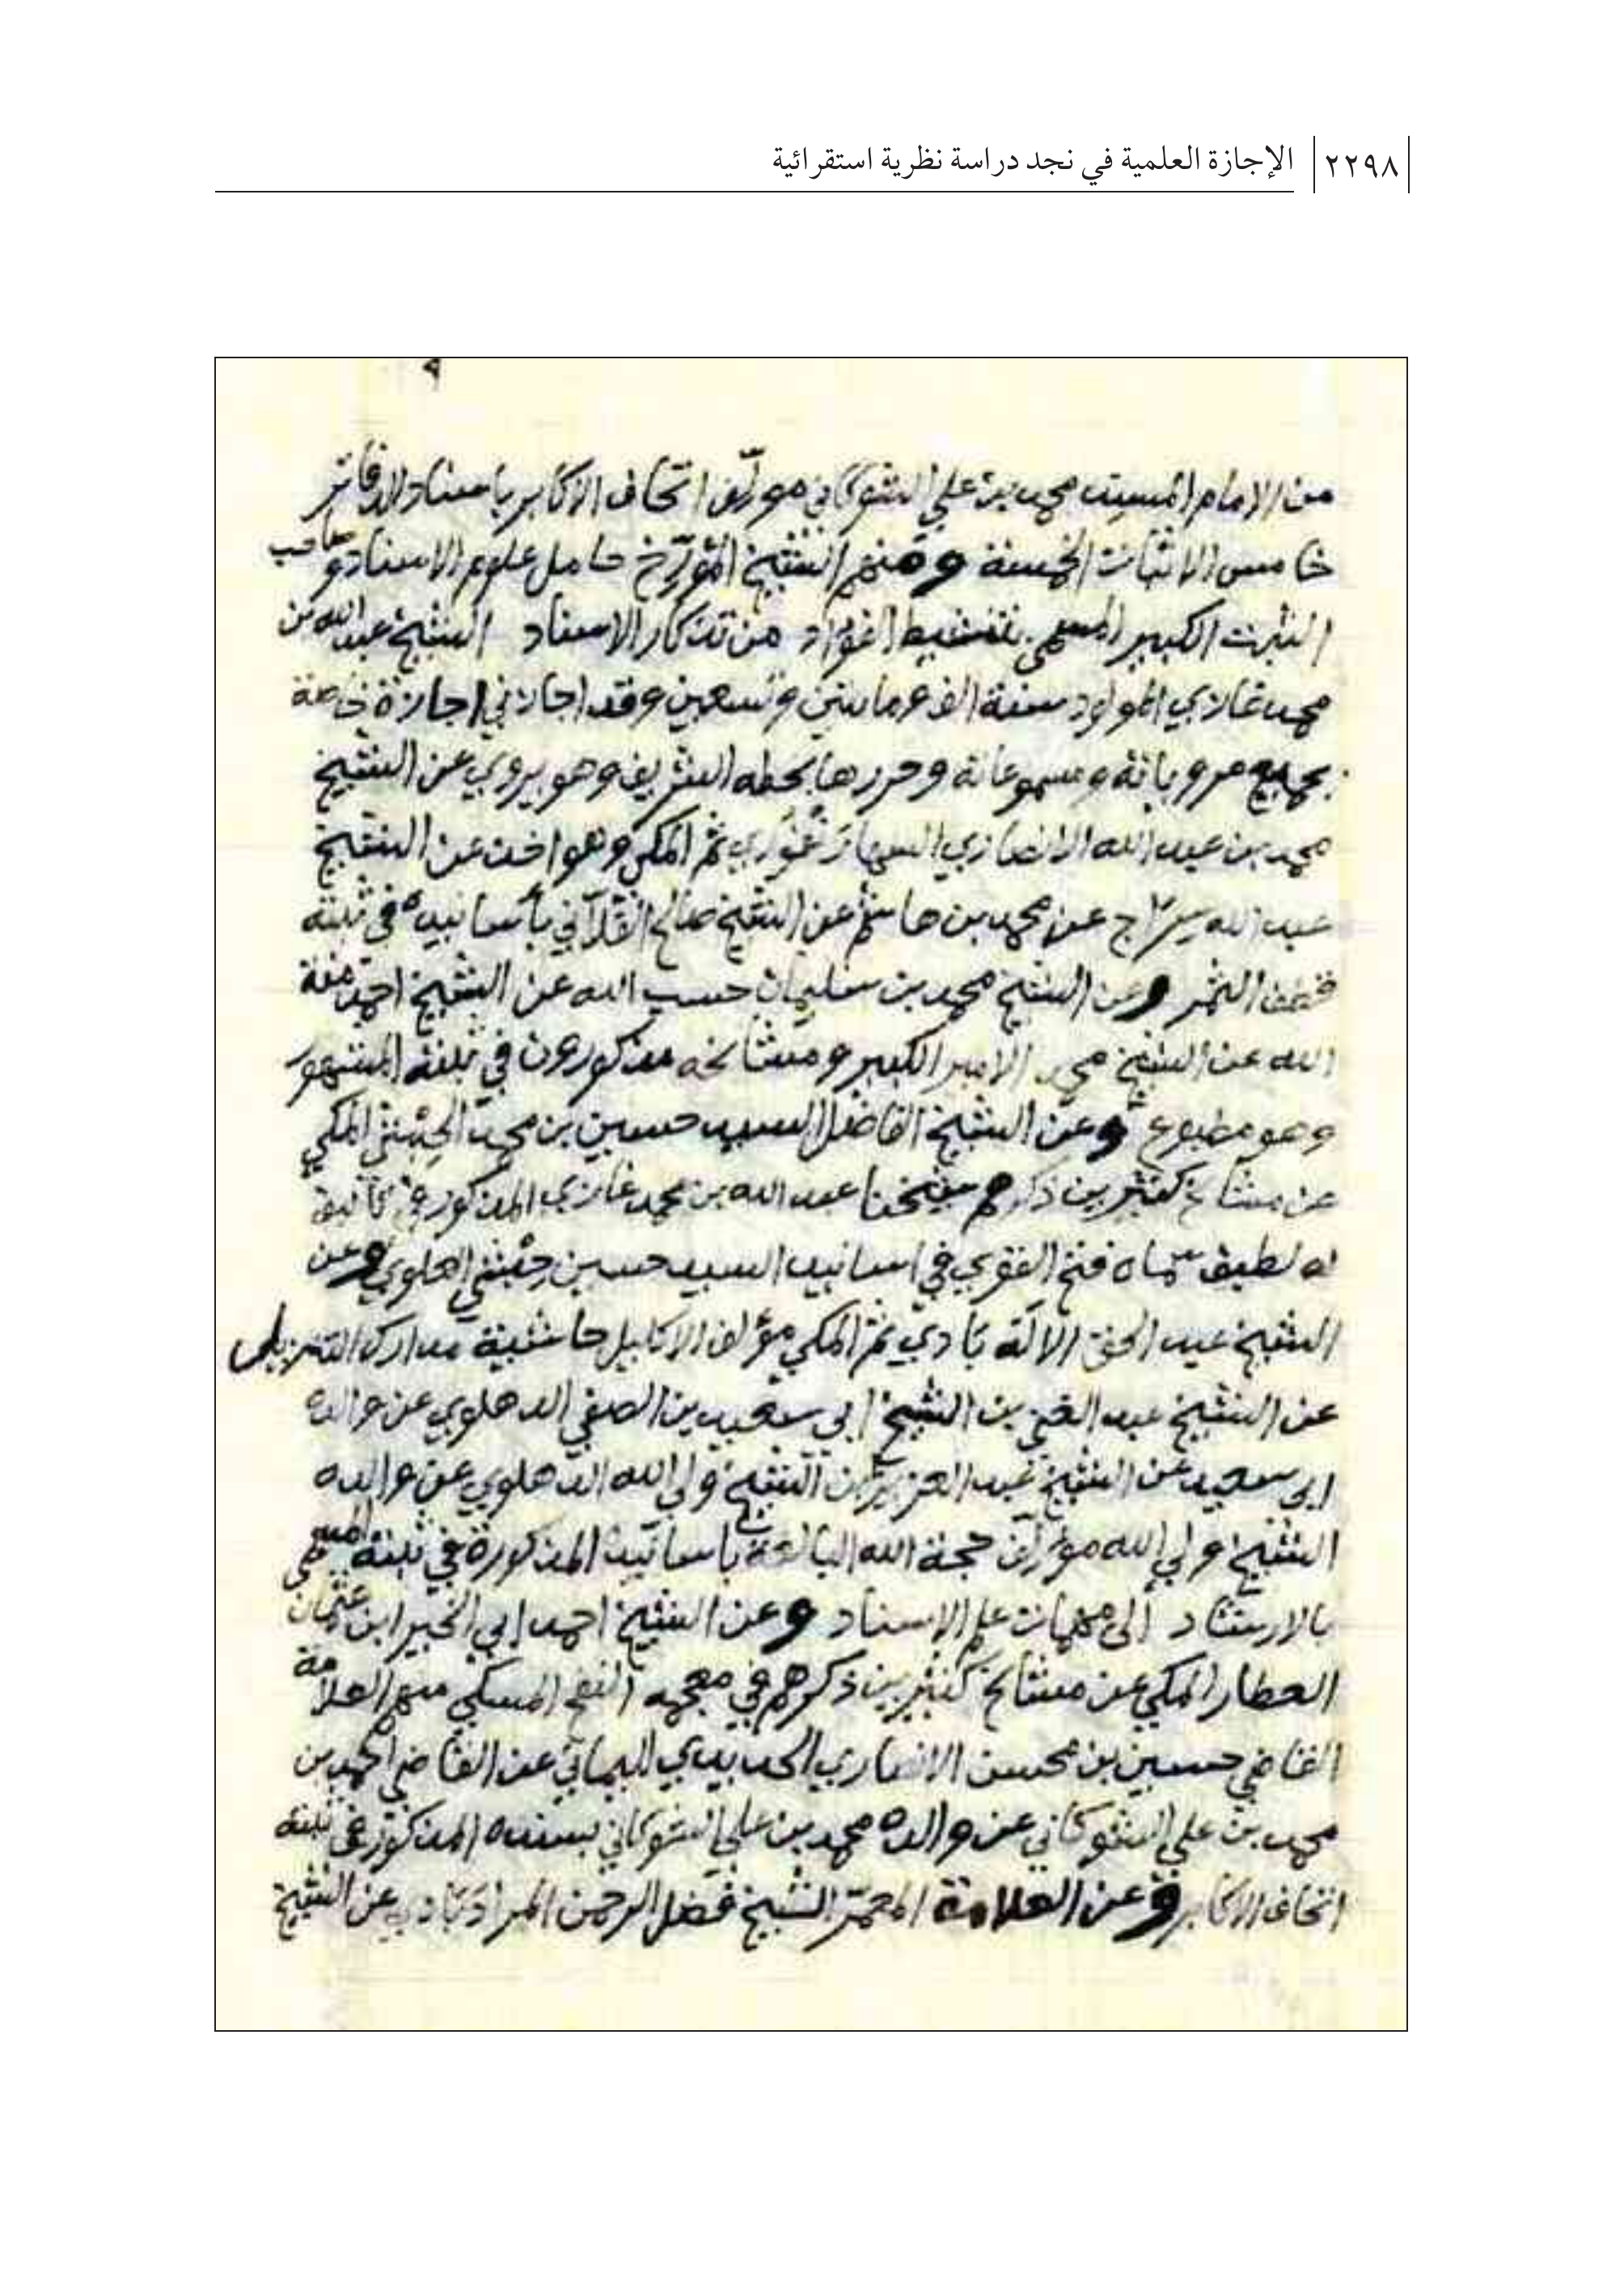 ٢٢٩٨ الإجازة العلمية في نجد دراسة نظرية استقرائية
٩
من الامام المسند محمد بن علي الشوكاني مؤلف اتحاف الاكابر باسناد الدفاتر
خامس الاثبات الخمسة ومنهم الشيخ المؤرخ حامل علوم الاسناد وصاحب
الثبت الكبير المسمى بتنشيط الفؤاد من تذكار الاسناد الشيخ عبد الله بن
محمد غازي المولود سنة الف ومايتين وتسعين وقد اجازني اجازة خاصة
بجميع مروياته ومسموعاته وحررها بخطه الشريف وهو يروي عن الشيخ
محمد بن عبد الله الانصاري السهارنفوري ثم المكي وهو اخذ عن الشيخ
عبد الله سراج عن محمد بن هاشم عن الشيخ صالح الفلاني بأسانيده في ثبته
قطف الثمر وعن الشيخ محمد بن سليمان حسب الله عن الشيخ احمد منة
الله عن الشيخ محمد الامير الكبير ومشائخه مذكورون في ثبته المشهور
وهو مطبوع وعن الشيخ الفاضل السيد حسين بن محمد الحبشي المكي
عن مشائخ كثيرين ذكرهم شيخنا عبد الله بن محمد غازي المذكور في تأليف
له لطيف سماه فتح القوي في اسانيد السيد حسين حبشي العلوي وعن
الشيخ عبد الحق الاله بادي ثم المكي مؤلف الاكليل حاشية مدارك التنزيل
عن الشيخ عبد الغني بن الشيخ ابي سعيد بن الصفي الدهلوي عن والده
ابي سعيد عن الشيخ عبد العزيز بن الشيخ ولي الله الدهلوي عن والده
الشيخ ولي الله مؤلف حجة الله البالغة باسانيده المذكورة في ثبته المسمى
بالارشاد الى مهمات علم الاسناد وعن الشيخ احمد ابي الخير ابن عثمان
العطار المكي عن مشائخ كثيرين ذكرهم في معجمه النفح المسكي منهم العلامة
القاضي حسين بن محسن الانصاري الحديدي اليماني عن القاضي احمد بن
محمد بن علي الشوكاني عن والده محمد بن علي الشوكاني بسنده المذكور في ثبته
اتحاف الاكابر وعن العلامة المعمر الشيخ فضل الرحمن المرادآبادي عن الشيخ